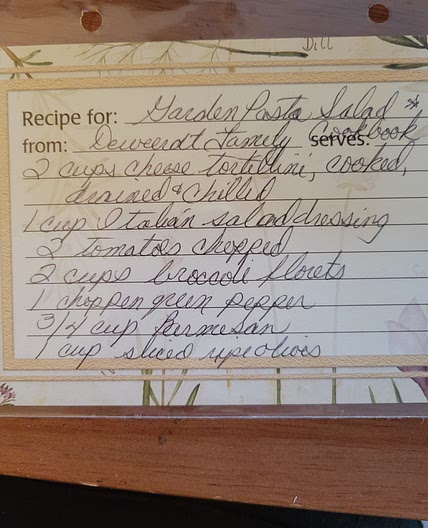 Dill
Recipe for: Garden Pasta Salad *
from: Deweerdt Family Cookbook serves:
2 cups cheese tortellini, cooked,
drained & chilled
1 cup Italian salad dressing
2 tomatoes chopped
2 cups broccoli florets
1 choppen green pepper
3/4 cup Parmesan
1 cup sliced ripe olives